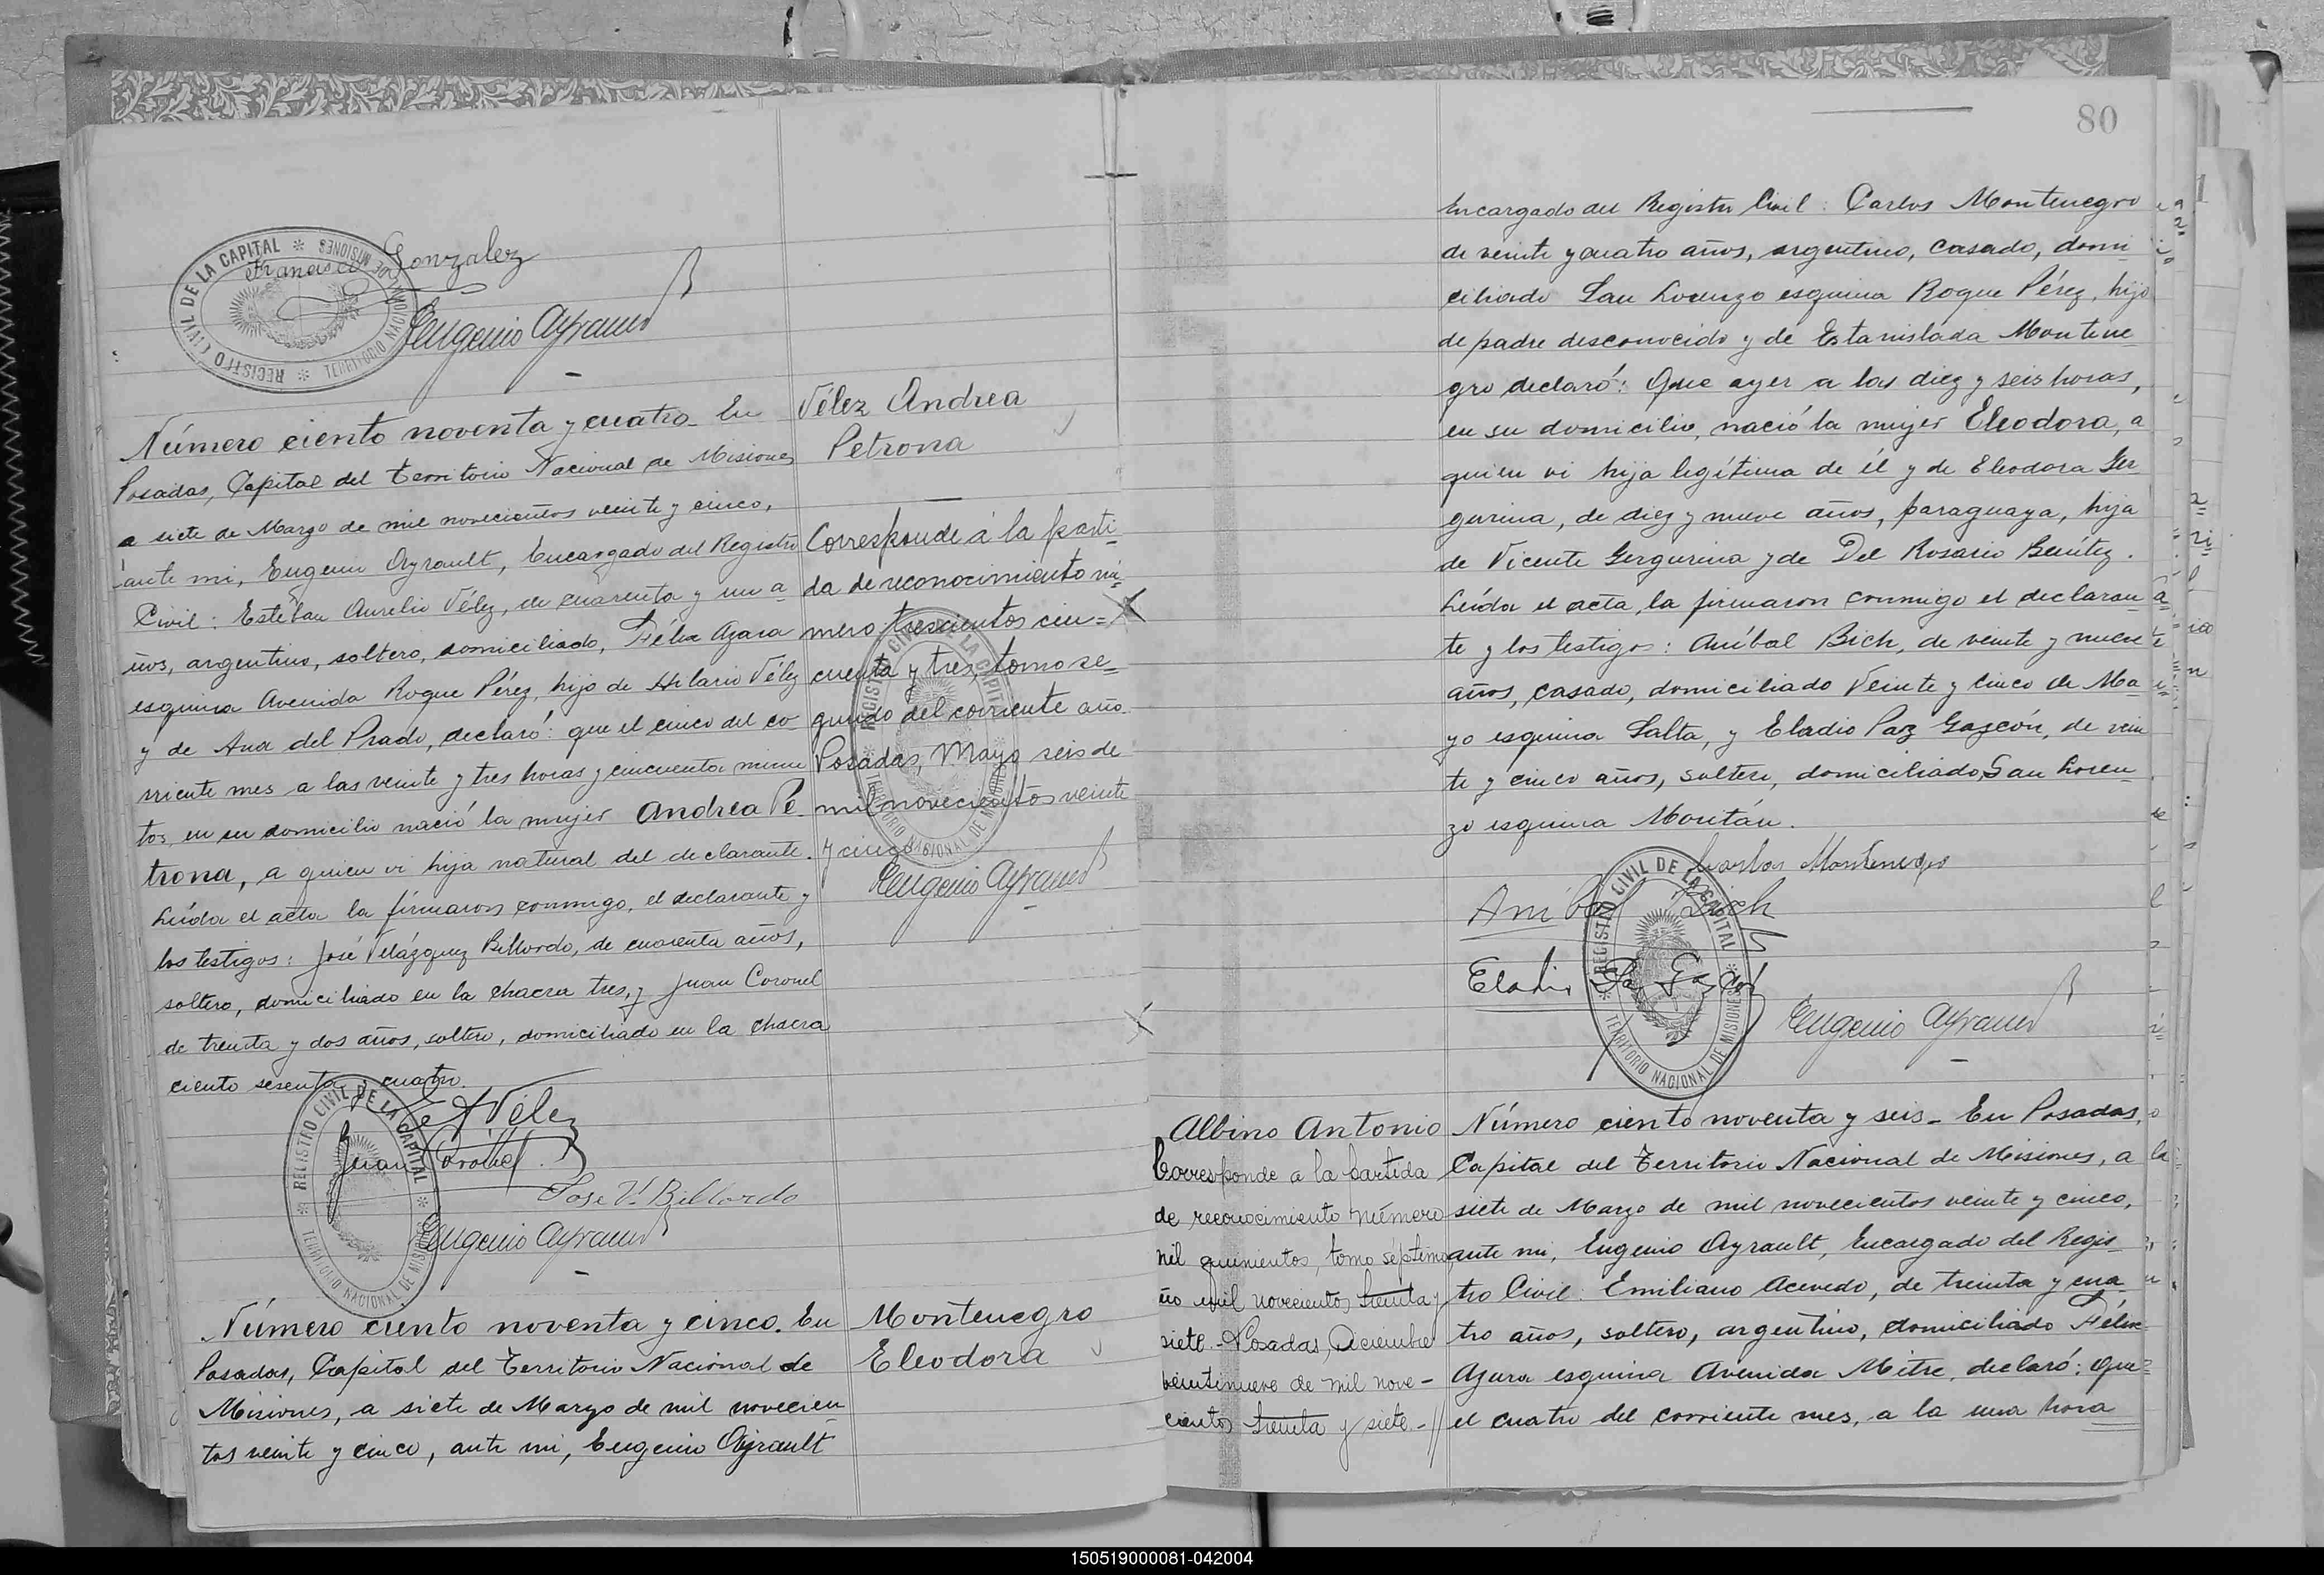 Francisco Gonzalez
REGISTRO CIVIL DE LA CAPITAL * TERRITORIO NACIONAL DE MISIONES *
Eugenio Ayrault
Número ciento noventa y cuatro. En
Posadas, Capital del Territorio Nacional de Misiones
a siete de Marzo de mil novecientos veinte y cinco,
ante mi, Eugenio Ayrault, Encargado del Registro
Civil: Estéban Aurelio Vélez, de cuarenta y un a-
ños, argentino, soltero, domiciliado, Félix Azara
esquina Avenida Roque Pérez, hijo de Hilario Vélez
y de Ana del Prado, declaró: que el cinco del co-
rriente mes a las veinte y tres horas y cincuenta minu
tos, en su domicilio nació la mujer Andrea Pe-
trona, a quien vi hija natural del declarante.
Leída el acta la firmaron conmigo, el declarante y
los testigos: José Velázquez Billordo, de cuarenta años,
soltero, domiciliado en la chacra tres, y Juan Coronel
de treinta y dos años, soltero, domiciliado en la chacra
ciento sesenta y cuatro.
E A Vélez
Juan Coronel
Jose V. Billordo
REGISTRO CIVIL DE LA CAPITAL * TERRITORIO NACIONAL DE MISIONES *
Eugenio Ayrault
Vélez Andrea
Petrona
Corresponde á la parti-
da de reconocimiento nú-
mero trescientos cin=
cuenta y tres, tomo se-
gundo del corriente año.
Posadas, Mayo seis de
mil novecientos veinte
y cinco
REGISTRO CIVIL DE LA CAPITAL * TERRITORIO NACIONAL DE MISIONES *
Eugenio Ayrault
Número ciento noventa y cinco. En
Posadas, Capital del Territorio Nacional de
Misiones, a siete de Marzo de mil novecien
tos veinte y cinco, ante mi, Eugenio Ayrault
Montenegro
Eleodora
80
Encargado del Registro Civil: Carlos Montenegro
de veinte y cuatro años, argentino, casado, domi-
ciliado San Lorenzo esquina Roque Pérez, hijo
de padre desconocido y de Estanislada Montene-
gro declaró: Que ayer a las diez y seis horas,
en su domicilio, nació la mujer Eleodora, a
quien vi hija legítima de él y de Eleodora Ger
gurina, de diez y nueve años, paraguaya, hija
de Vicente Gergurina y de Del Rosario Benítez.
Leída el acta, la firmaron conmigo el declaran
te y los testigos: Aníbal Bich, de veinte y nueve
años, casado, domiciliado Veinte y Cinco de Ma-
yo esquina Salta, y Eladio Paz Gazcón, de vein
te y cinco años, soltero, domiciliado San Loren
zo esquina Moritán.
Carlos Montenegro
Anibal Bich
REGISTRO CIVIL DE LA CAPITAL * TERRITORIO NACIONAL DE MISIONES *
Eladio Paz Gazcón
Eugenio Ayrault
Albino Antonio
Corresponde a la partida
de reconocimiento número
mil quinientos, tomo séptimo
año mil novecientos treinta y
siete.- Posadas, Diciembre
veintinueve de mil nove-
cientos treinta y siete.-//
Número ciento noventa y seis. En Posadas,
Capital del Territorio Nacional de Misiones, a
siete de Marzo de mil novecientos veinte y cinco,
ante mi, Eugenio Ayrault, Encargado del Regis-
tro Civil: Emiliano Acevedo, de treinta y cua-
tro años, soltero, argentino, domiciliado Félix
Azara esquina Avenida Mitre, declaró: Que
el cuatro del corriente mes, a la una hora
150519000081-042004